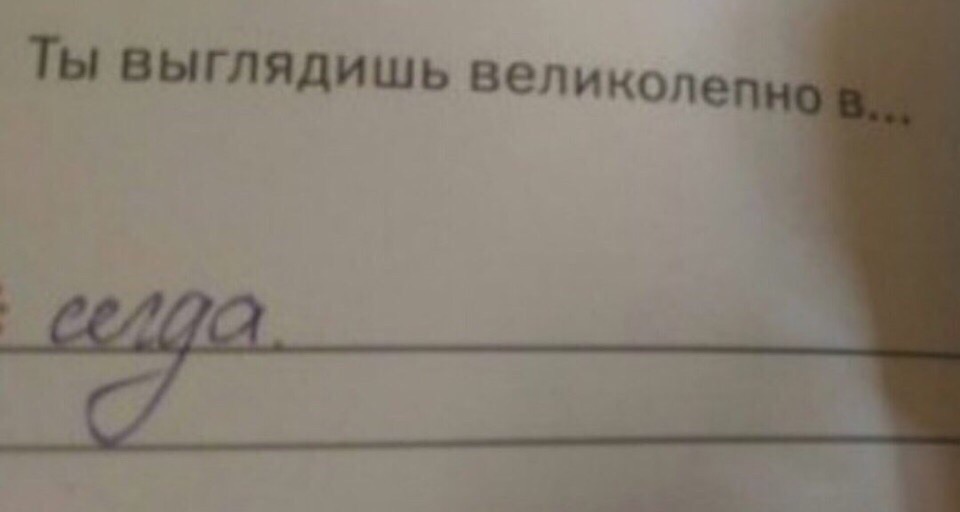 Ты выглядишь великолепно в...
сегда.